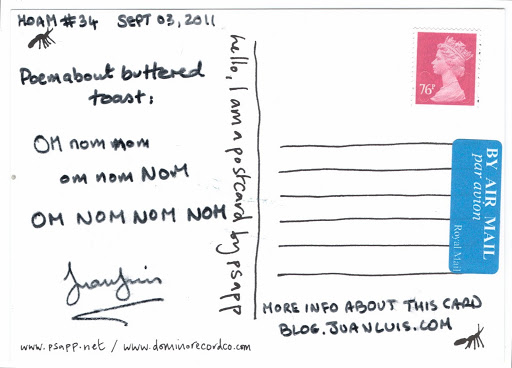 HOAM #34 SEPT 03, 2011
Poem about buttered
toast:
OM nom nom
om nom NOM
OM NOM NOM NOM
JuanLuis
www.psapp.net / www.dominorecordco.com
hello, I am a postcard by psapp
76P
BY AIR MAIL
par avion
Royal Mail
MORE INFO ABOUT THIS CARD
BLOG.JUANLUIS.COM